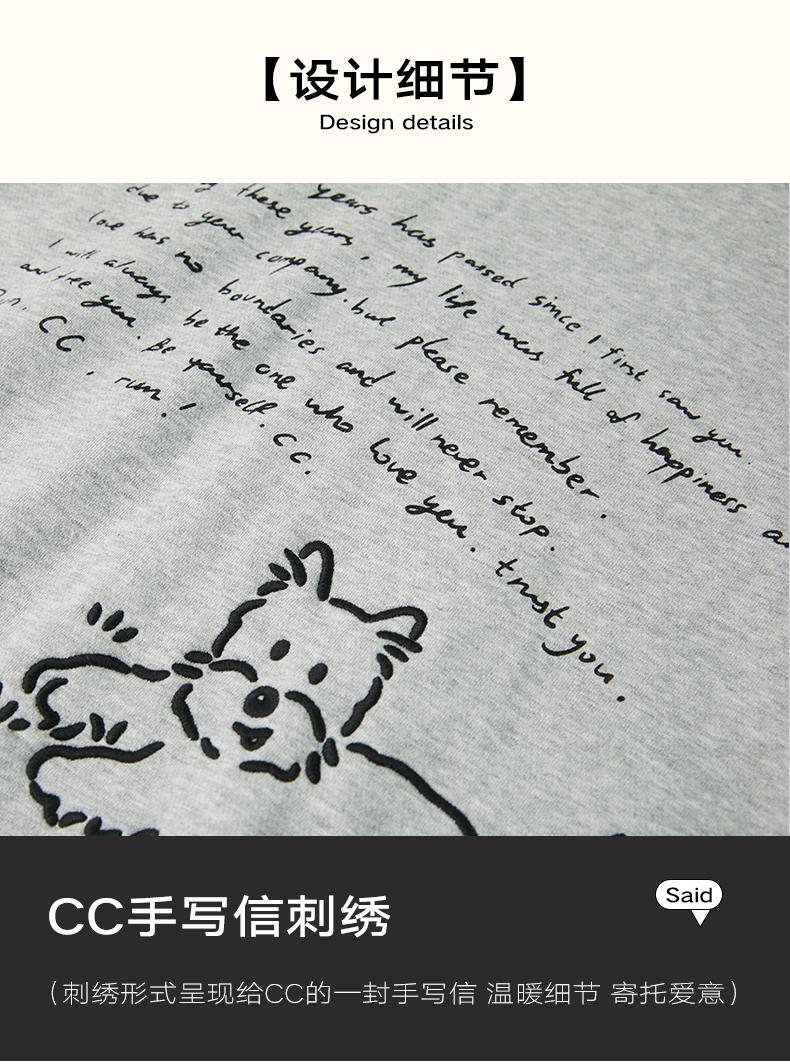 【设计细节】
Design details
years has passed since I first saw you.
these years, my life was full of happiness
due to your company. but please remember.
love has no boundaries and will never stop.
I will always be the one who love you. trust you.
and free you. Be yourself. CC.
CC, run!
CC手写信刺绣
Said
(刺绣形式呈现给CC的一封手写信 温暖细节 寄托爱意)